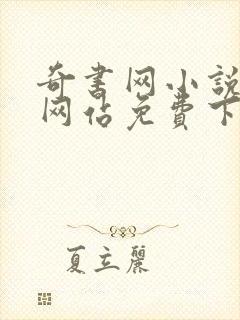 奇書网小說
网佔免費下
夏立麗